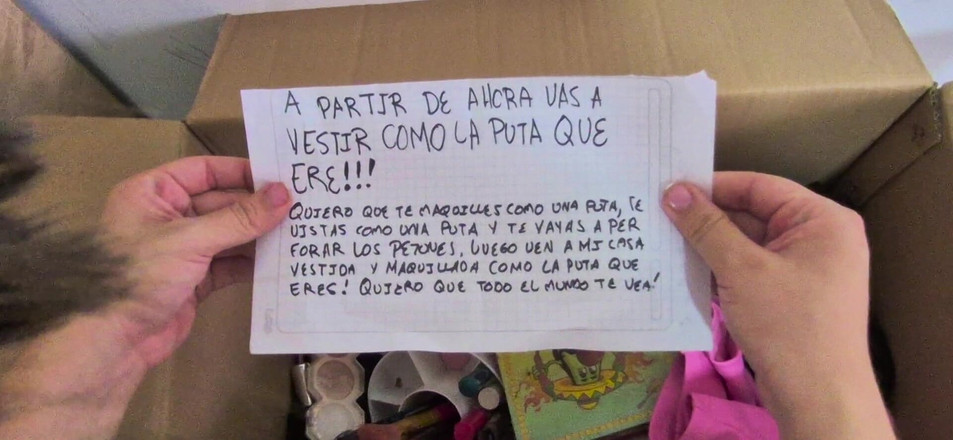 A PARTIR DE AHORA VAS A
VESTIR COMO LA PUTA QUE
ERE!!!
QUIERO QUE TE MAQUILLES COMO UNA PUTA, TE
VISTAS COMO UNA PUTA Y TE VAYAS A PER
FORAR LOS PEZONES. LUEGO VEN A MI CASA
VESTIDA Y MAQUILLADA COMO LA PUTA QUE
ERES! QUIERO QUE TODO EL MUNDO TE VEA!